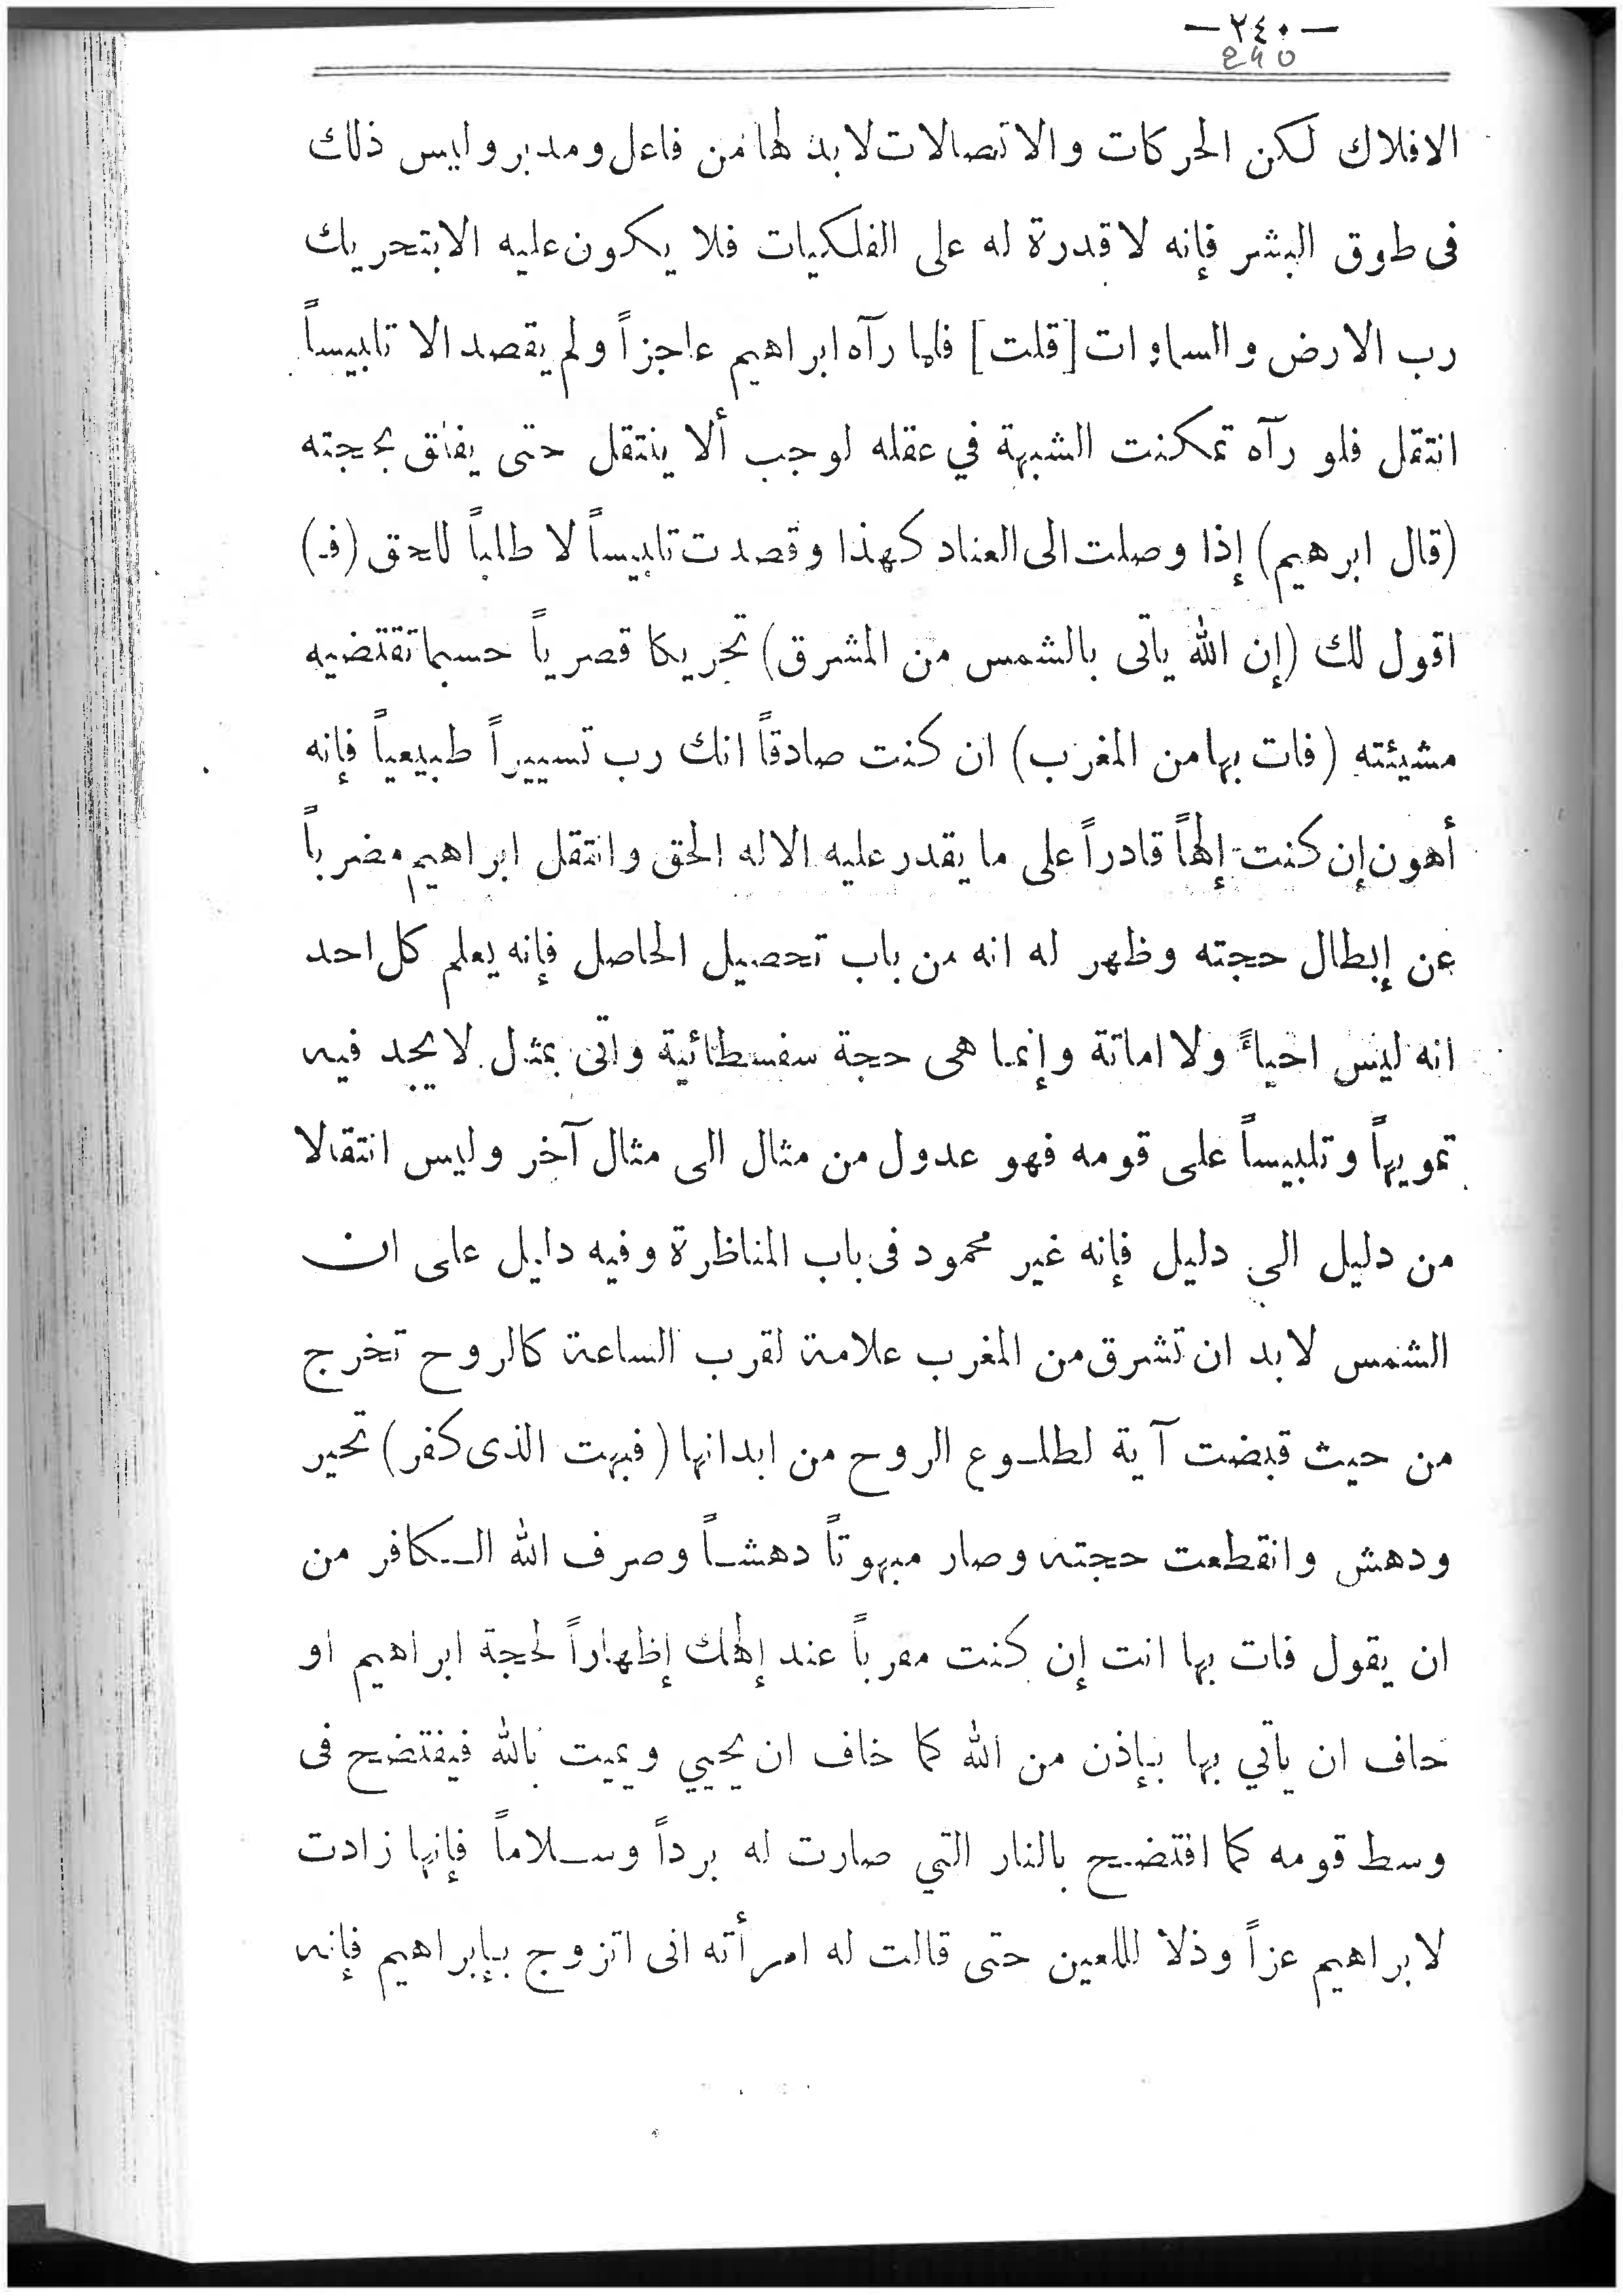 —٢٤٠—
240
الافلاك لكن الحركات والاتصالات لابد لها من فاعل ومدبر وليس ذلك
فى طوق البشر فإنه لا قدرة له على الفلكيات فلا يكون عليه الابتحريك
رب الارض والسماوات [قلت] فلما رآه ابراهيم عاجزاً ولم يقصد الا تلبيساً
انتقل فلو رآه تمكنت الشبهة في عقله لوجب ألا ينتقل حتى يفلق بحجته
(قال ابرهيم) إذا وصلت الى العناد كهذا وقصدت تلبيساً لا طلباً للحق (فـ)
اقول لك (إن الله يأتى بالشمس من المشرق) تحريكا قصرياً حسبما تقتضيه
مشيئته (فات بها من المغرب) ان كنت صادقاً انك رب تسييراً طبيعياً فإنه
أهون إن كنت إلهاً قادراً على ما يقدر عليه الاله الحق وانتقل ابراهيم مضرباً
عن إبطال حجته وظهر له انه من باب تحصيل الحاصل فإنه يعلم كل احد
انه ليس احياءً ولا اماتة وإنما هى حجة سفسطائية واتى بمثل لا يجد فيه
تمويهاً وتلبيساً على قومه فهو عدول من مثال الى مثال آخر وليس انتقالا
من دليل الى دليل فإنه غير محمود فى باب المناظرة وفيه دليل على ان
الشمس لابد ان تشرق من المغرب علامة لقرب الساعة كالروح تخرج
من حيث قبضت آية لطلـوع الروح من ابدانها (فبهت الذى كفر) تحير
ودهش وانقطعت حجته وصار مبهوتاً دهشـاً وصرف الله الـكافر من
ان يقول فات بها انت إن كنت مقرباً عند إلهك إظهاراً لحجة ابراهيم او
خاف ان يأتي بها بإذن من الله كما خاف ان يحيي ويميت بالله فيفتضح فى
وسط قومه كما افتضح بالنار التي صارت له برداً وسـلاماً فإنها زادت
لابراهيم عزاً وذلا لللعين حتى قالت له امرأته انى اتزوج بإبراهيم فإنه